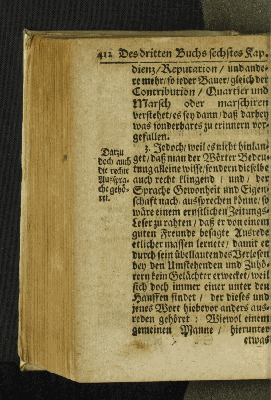 412 Des dritten Buchs sechstes Kap.
dienz / Reputation / und ande-
re mehr / so ieder Bauer / gleich der
Contribution / Quartier und
Marsch oder marschiren
verstehet / es sey dann / daß darbey
was sonderbares zu erinnern vor-
gefallen.
Darzu
doch auch
die rechte
Ausspra-
che gehö-
ret.
3. Jedoch / weil es nicht hinlan-
get / daß man der Wörter Bedeu-
tung alleine wisse / sondern dieselbe
auch recht klingend / und / der
Sprache Gewonheit und Eigen-
schaft nach / aussprechen könne / so
wäre einem ernstlichen Zeitungs-
Leser zu rahten / daß er von einem
guten Freunde besagte Ausrede
etlicher massen lernete / damit er
durch sein übellautendes Verlesen
bey den Umstehenden und Zuhö-
rern kein Gelächter erwecket / weil
sich doch immer einer unter den
Hauffen findet / der dieses und
jenes Wort hiebevor anders aus-
reden gehöret: Wiewol einem
gemeinen Manne / hierunter
etwas